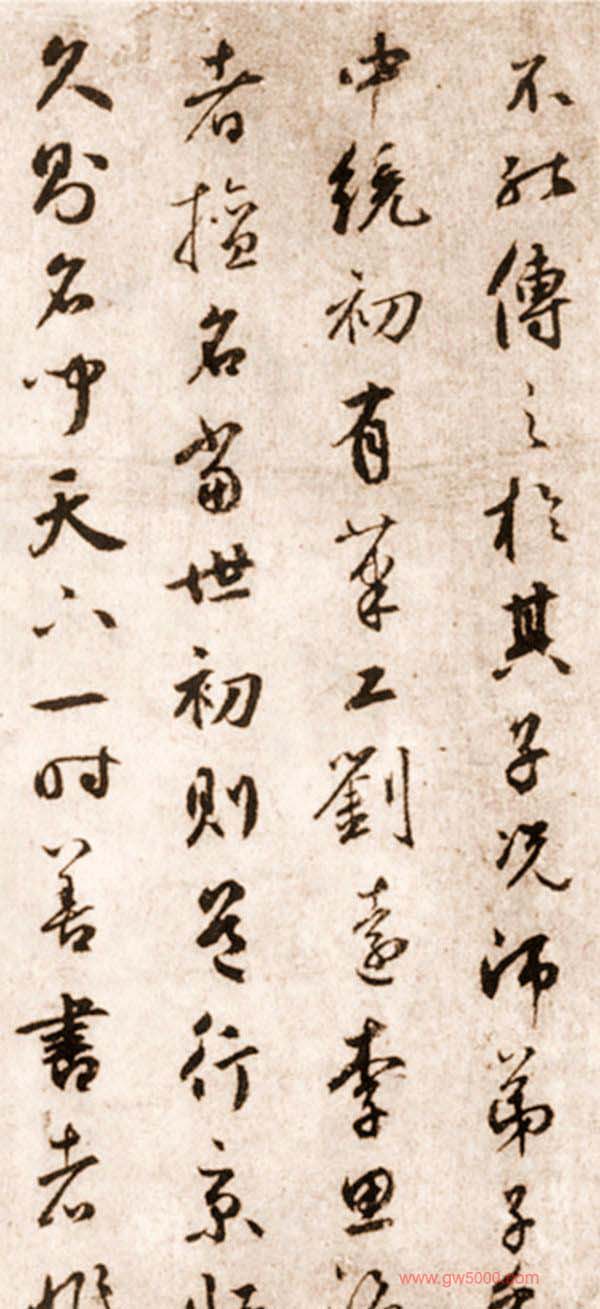 不能傳之於其子況師弟子
中統初有筆工劉遠李思
者擅名當世初則君行京
久則名聞天下一時善書者
www.gw5000.com